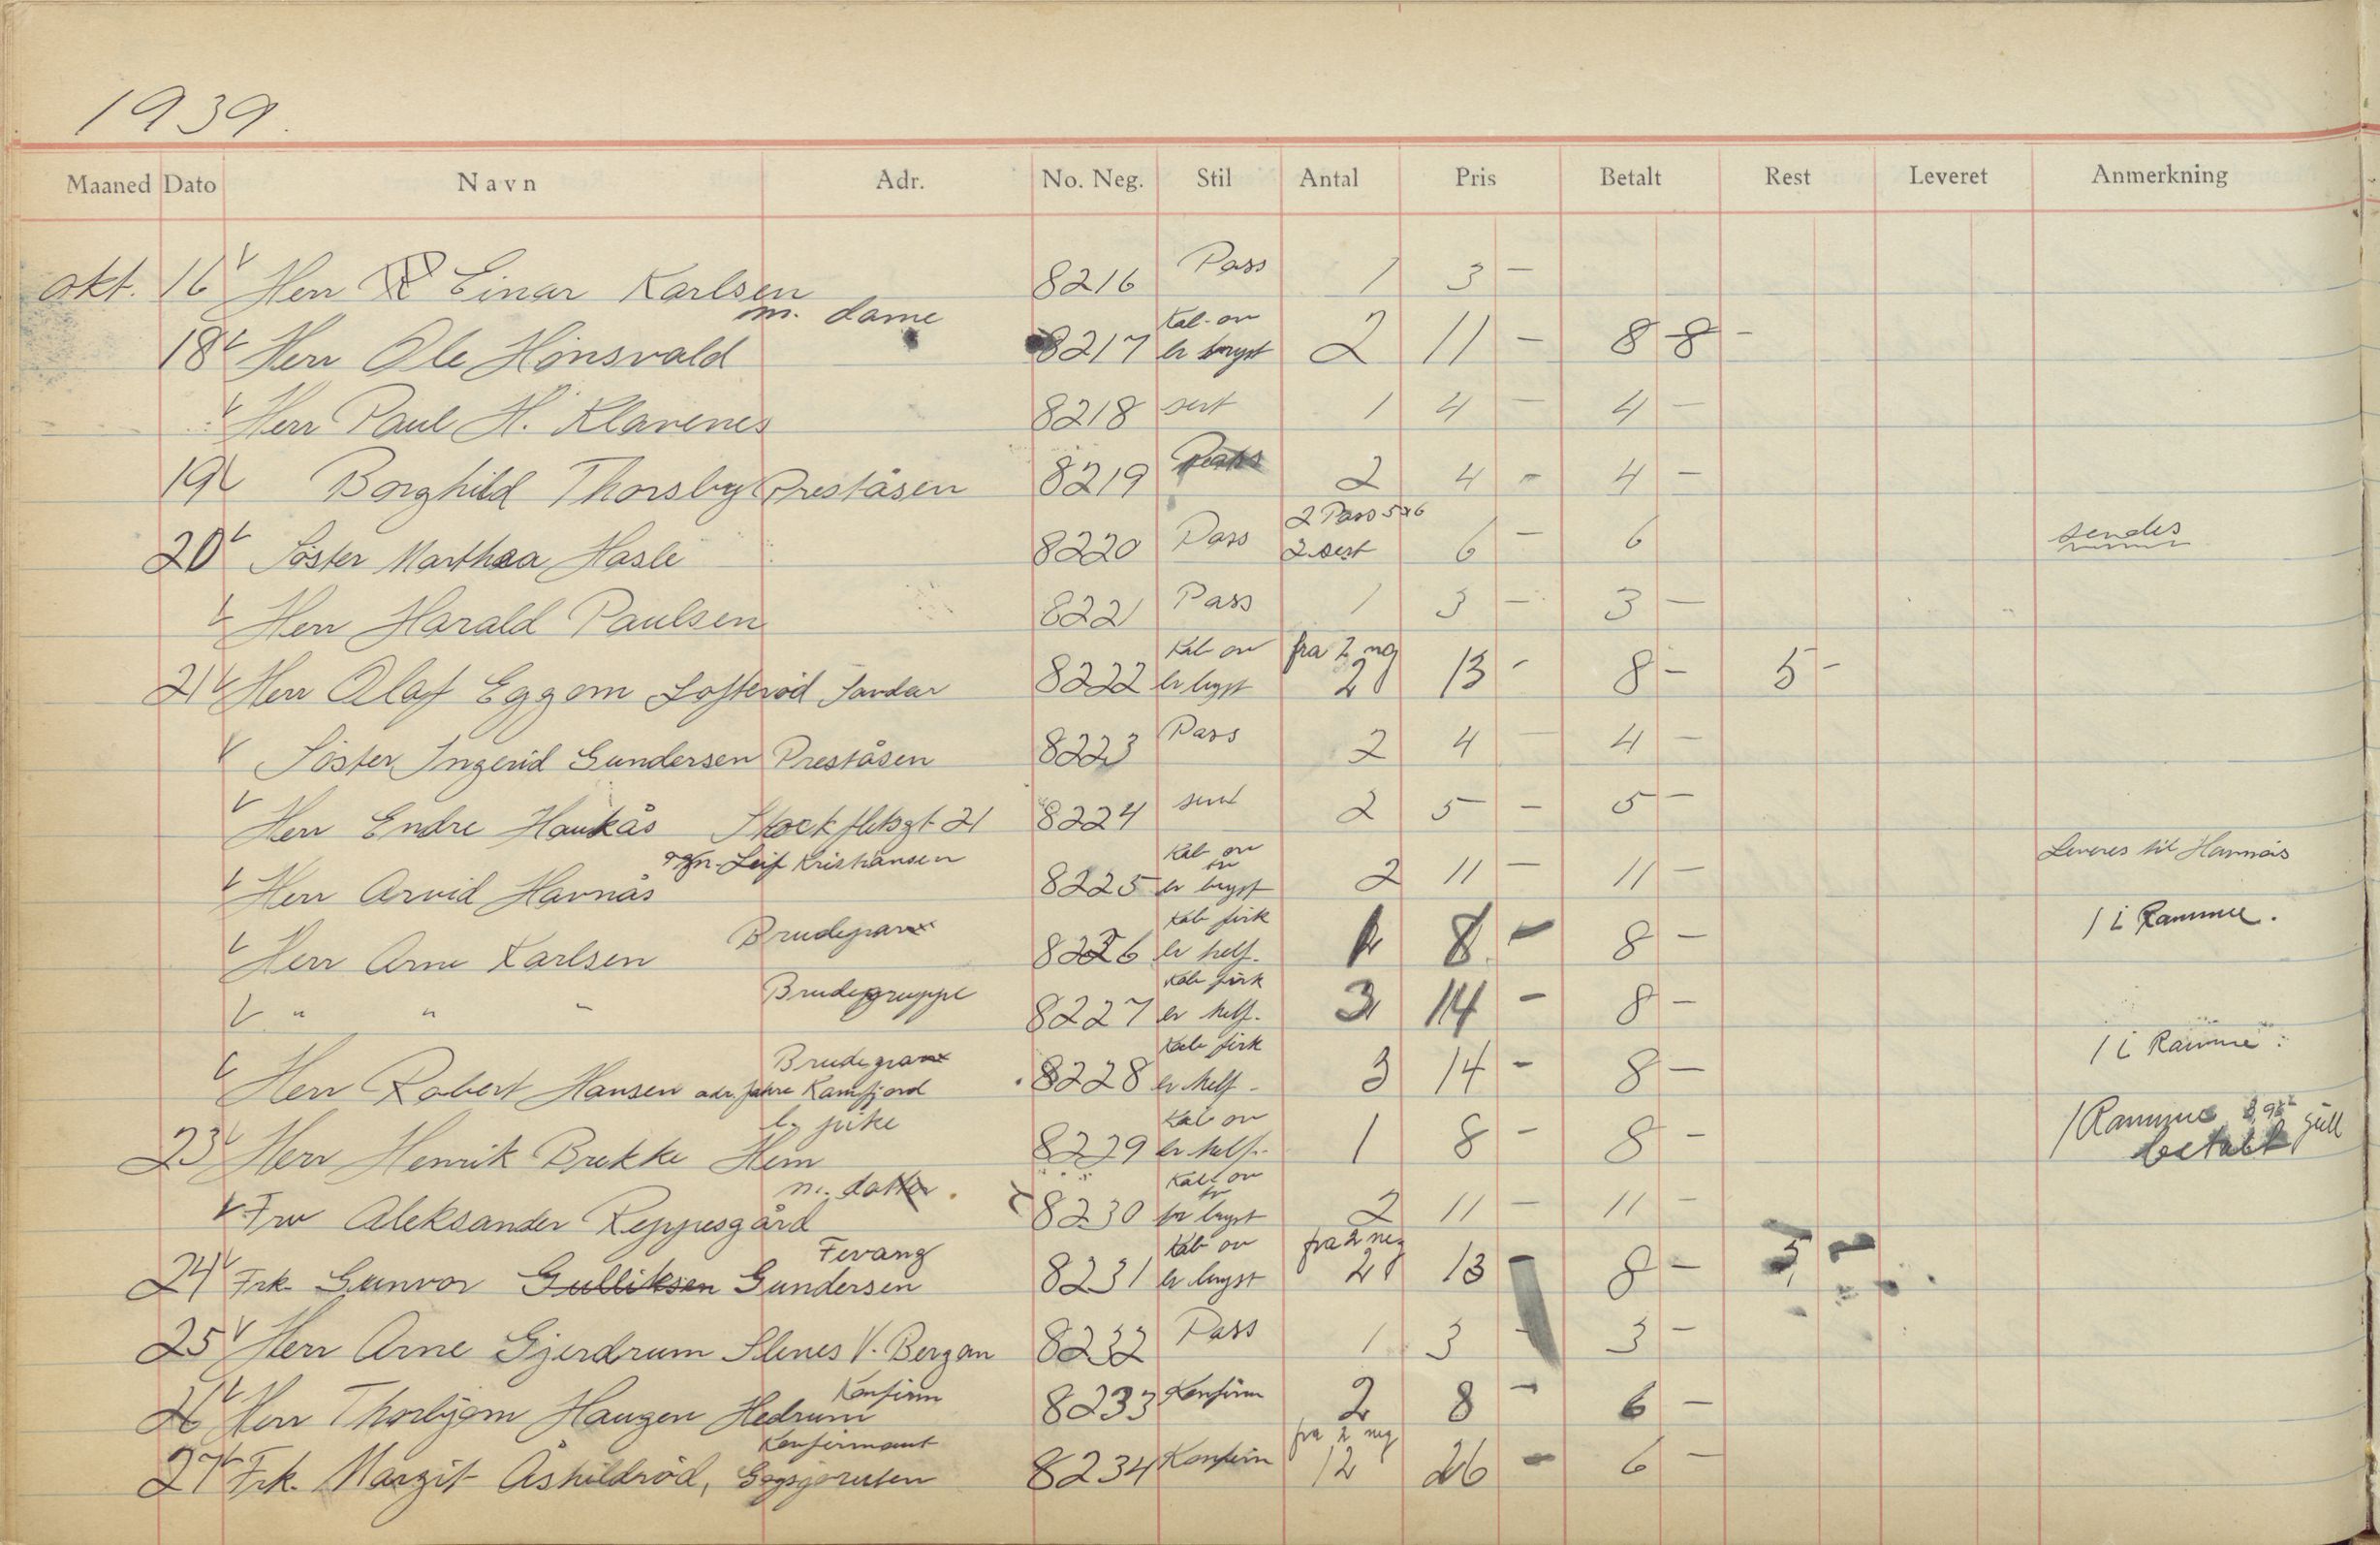 1939.
Maaned Dato Navn Adr. No. Neg. Stil Antal Pris Betalt Rest Leveret Anmerkning
Okt. 16 Herr Einar Karlsen 8216 Pass 1 3 -
m. dame Kab. ov
18 Herr Ole Hinsvald 8217 er bryst 2 11 - 8 8 -
Herr Paul H. Klavenes 8218 sert 1 4 - 4 -
19 Borghild Thorsby Preståsen 8219 2 4 - 4 -
2 Pass 5x6
20 Söster Marthea Hasle 8220 Pass 2 sert 6 - 6 sendes
Herr Harald Paulsen 8221 Pass 1 3 - 3 -
Kab ov fra 2 neg
21 Herr Olaf Eggom Lofteröd Sandar 8222 er bryst 2 13 - 8 - 5 -
Söster Ingerid Gundersen Preståsen 8223 Pass 2 4 - 4 -
Herr Endre Haukås Stockfletsgt 21 8224 2 5 - 5 -
Leif Kristiansen Kab ov Leveres til Havnås
Herr Arvid Havnås 8225 er bryst 2 11 - 11 -
Brudepar Kab firk 1 i Ramme.
Herr Arne Karlsen 8226 er helf. 8 - 8 -
Brudegruppe Kab firk
" " " 8227 er helf. 3 14 - 8 -
Kab firk 1 i Ramme.
Herr Robert Hansen adr. Jahre Kamfjord 8228 er helf. 3 14 - 8 -
l. pike Kab ov 1 Ramme gull
23 Herr Henrik Brekke Hem 8229 er helf. 1 8 - 8 - betalt
m. datter Kab ov
Fru Aleksander Reppesgård 8230 er bryst 2 11 - 11 -
Fevang Kab ov fra 2 neg
24 Frk. Gunvor Gulliksen Gundersen 8231 er bryst 2 13 8 - 5 -
25 Herr Arne Gjerdrum Slenes V. Bergan 8232 Pass 1 3 - 3 -
Konfirm
26 Herr Thorbjørn Haugen Hedrum 8233 Konfirm 2 8 - 6 -
Konfirmant fra 2 neg
27 Frk. Margit Åshildröd, 8234 Konfirm 12 26 - 6 -